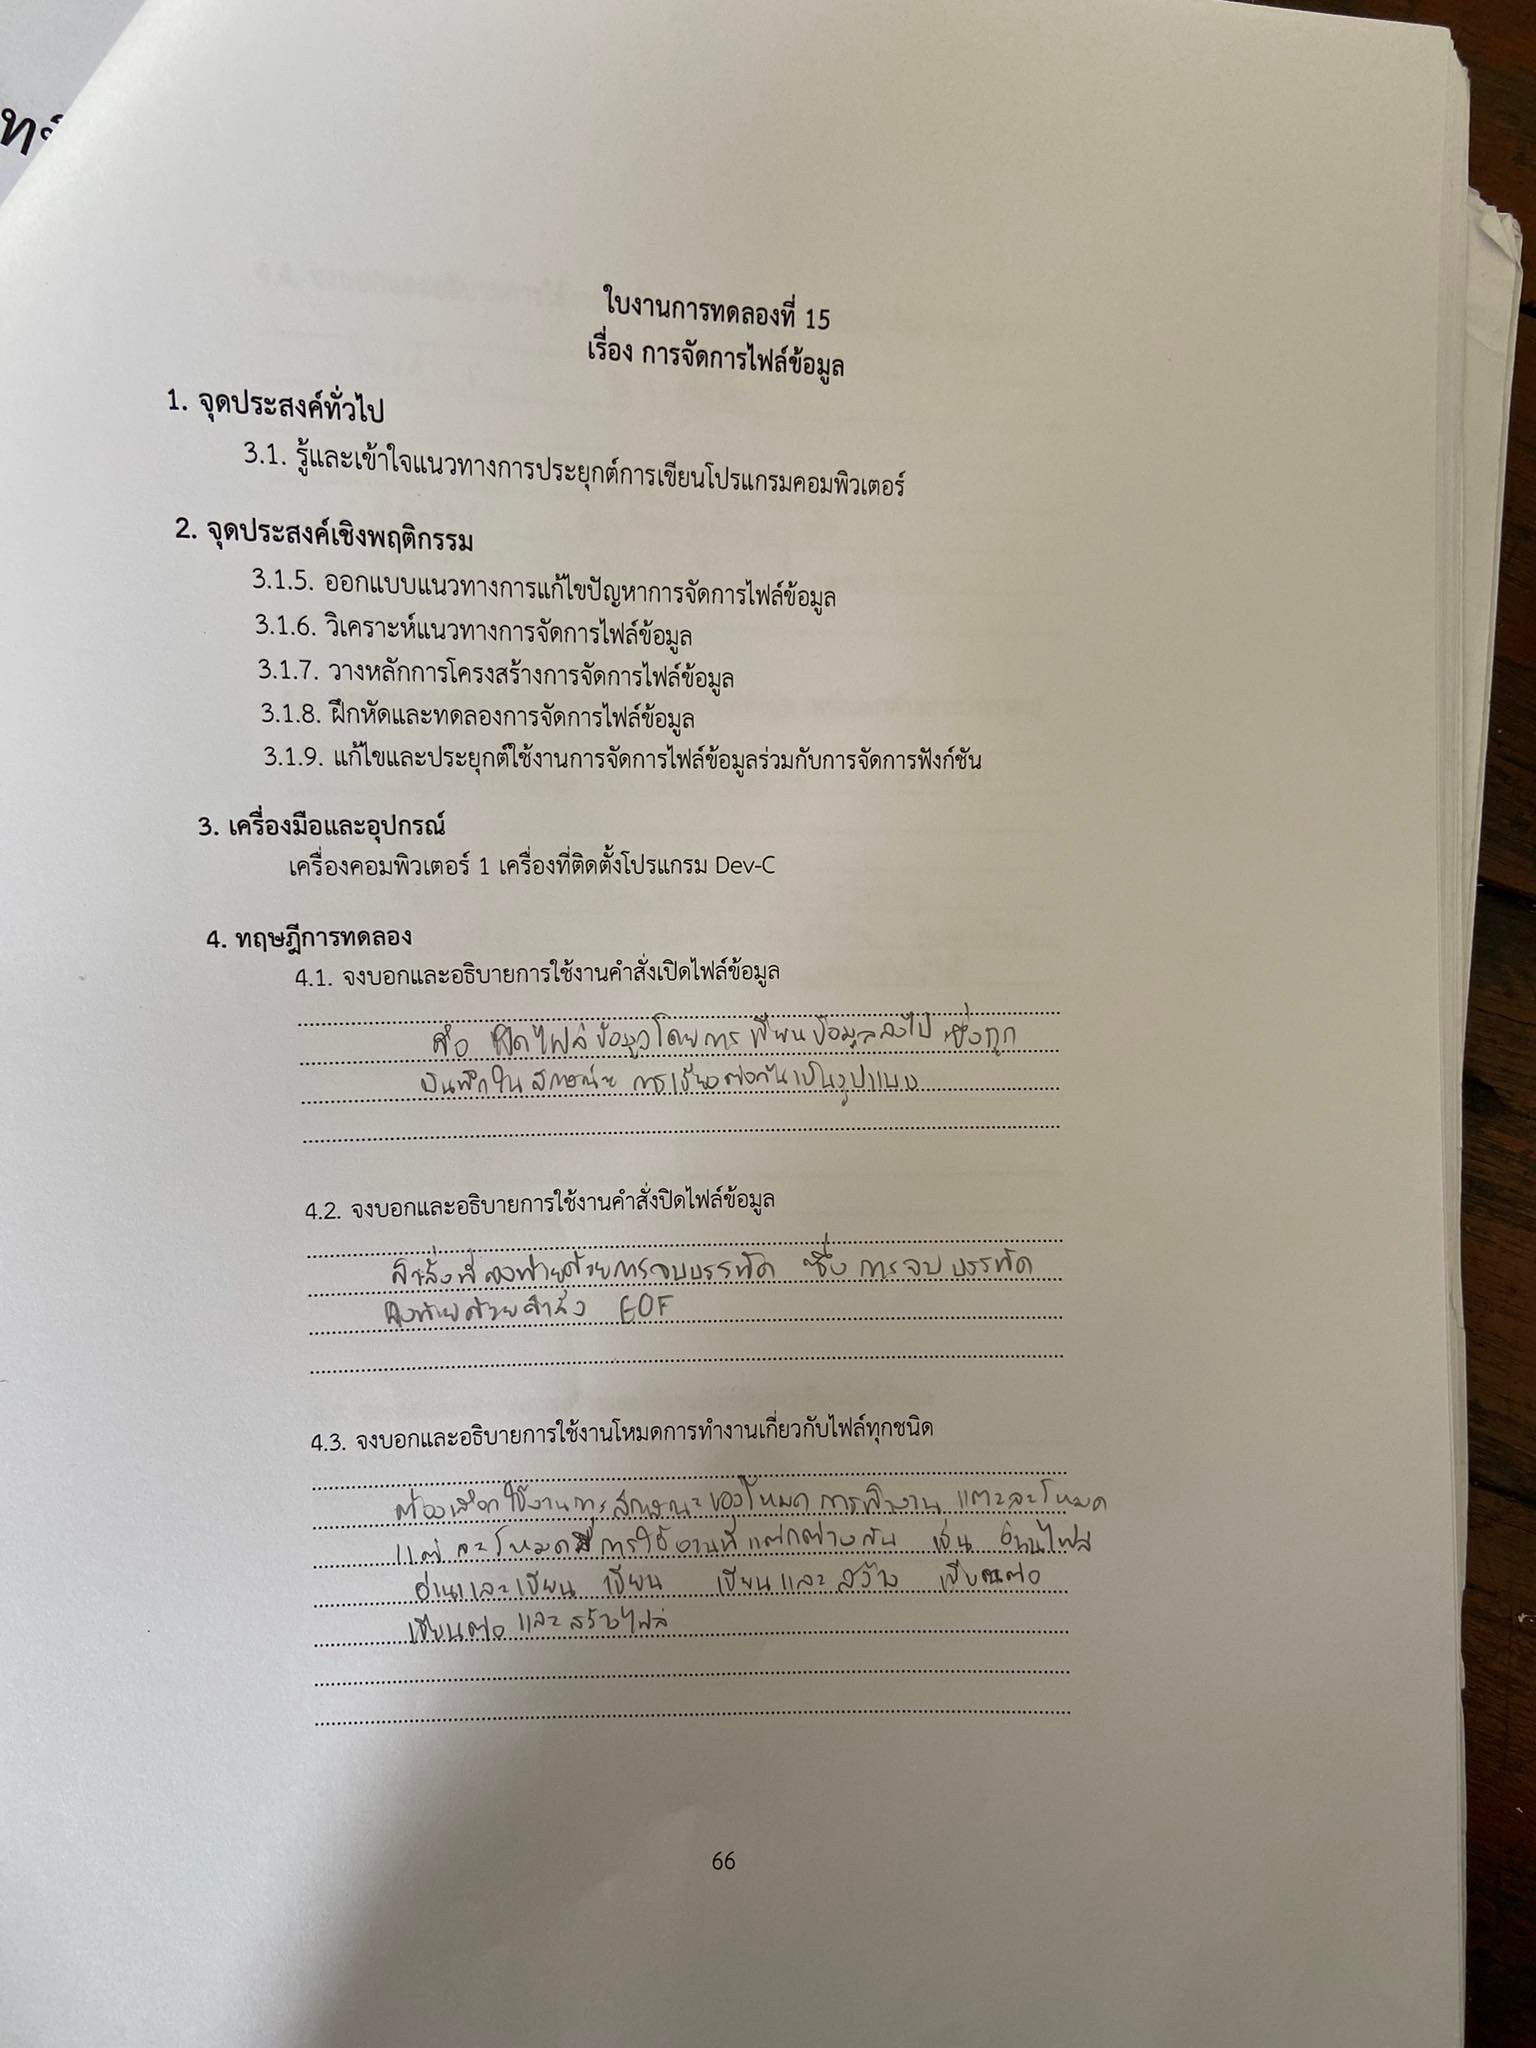 ใบงานการทดลองที่ 15
เรื่อง การจัดการไฟล์ข้อมูล
1. จุดประสงค์ทั่วไป
3.1. รู้และเข้าใจแนวทางการประยุกต์การเขียนโปรแกรมคอมพิวเตอร์
2. จุดประสงค์เชิงพฤติกรรม
3.1.5. ออกแบบแนวทางการแก้ไขปัญหาการจัดการไฟล์ข้อมูล
3.1.6. วิเคราะห์แนวทางการจัดการไฟล์ข้อมูล
3.1.7. วางหลักการโครงสร้างการจัดการไฟล์ข้อมูล
3.1.8. ฝึกหัดและทดลองการจัดการไฟล์ข้อมูล
3.1.9. แก้ไขและประยุกต์ใช้งานการจัดการไฟล์ข้อมูลร่วมกับการจัดการฟังก์ชัน
3. เครื่องมือและอุปกรณ์
เครื่องคอมพิวเตอร์ 1 เครื่องที่ติดตั้งโปรแกรม Dev-C
4. ทฤษฎีการทดลอง
4.1. จงบอกและอธิบายการใช้งานคำสั่งเปิดไฟล์ข้อมูล
คือ เปิดไฟล์ข้อมูลโดยการเขียนข้อมูลลงไป ซึ่งถูก
บันทึกในลักษณะ การเรียงต่อกันเป็นรูปแบบ
4.2. จงบอกและอธิบายการใช้งานคำสั่งปิดไฟล์ข้อมูล
คำสั่งที่ลงท้ายด้วยการจบบรรทัด ซึ่ง การจบ บรรทัด
ลงท้ายด้วยคำสั่ง EOF
4.3. จงบอกและอธิบายการใช้งานโหมดการทำงานเกี่ยวกับไฟล์ทุกชนิด
ต้องเลือกใช้งาน ลักษณะของโหมด การทำงาน แต่ละโหมด
แต่ละโหมดมีการใช้งานที่แตกต่างกัน เช่น อ่านไฟล์
อ่านและเขียน เขียน เขียนและสร้าง เขียนต่อ
เขียนต่อ และสร้างไฟล์
66